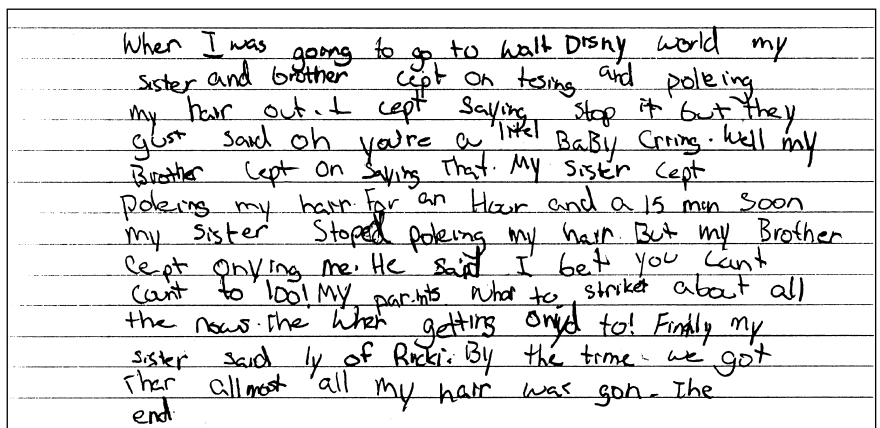 When I was going to go to Walt Disny world my
sister and brother cept on tesing and poleing
my hair out. I cept saying stop it but they
gust said oh you're a littel BaBy Crring. Well my
Brother cept on saying That. My sister cept
poleing my hair. For an Hour and a 15 min soon
my sister Stoped poleing my hair. But my Brother
cept onying me. He said I bet you cant
cant to 100! My par.ints whar to striket about all
the nows. The wher getting onyd to! Finally my
sister said ly of Ricki. By the time we got
Thar allmost all my hair was gon. The
end.